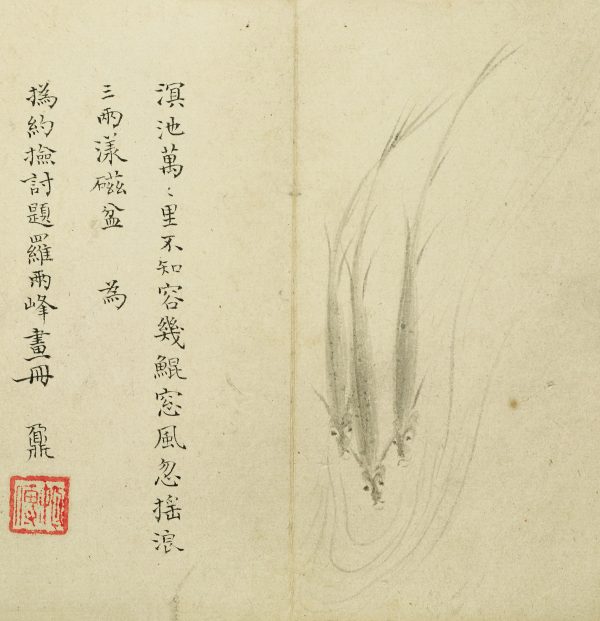 溟池萬〻里不知容幾鯤窓風忽搖浪
三兩漾磁盆 為
撝約撿討題羅兩峰畫冊 鼐